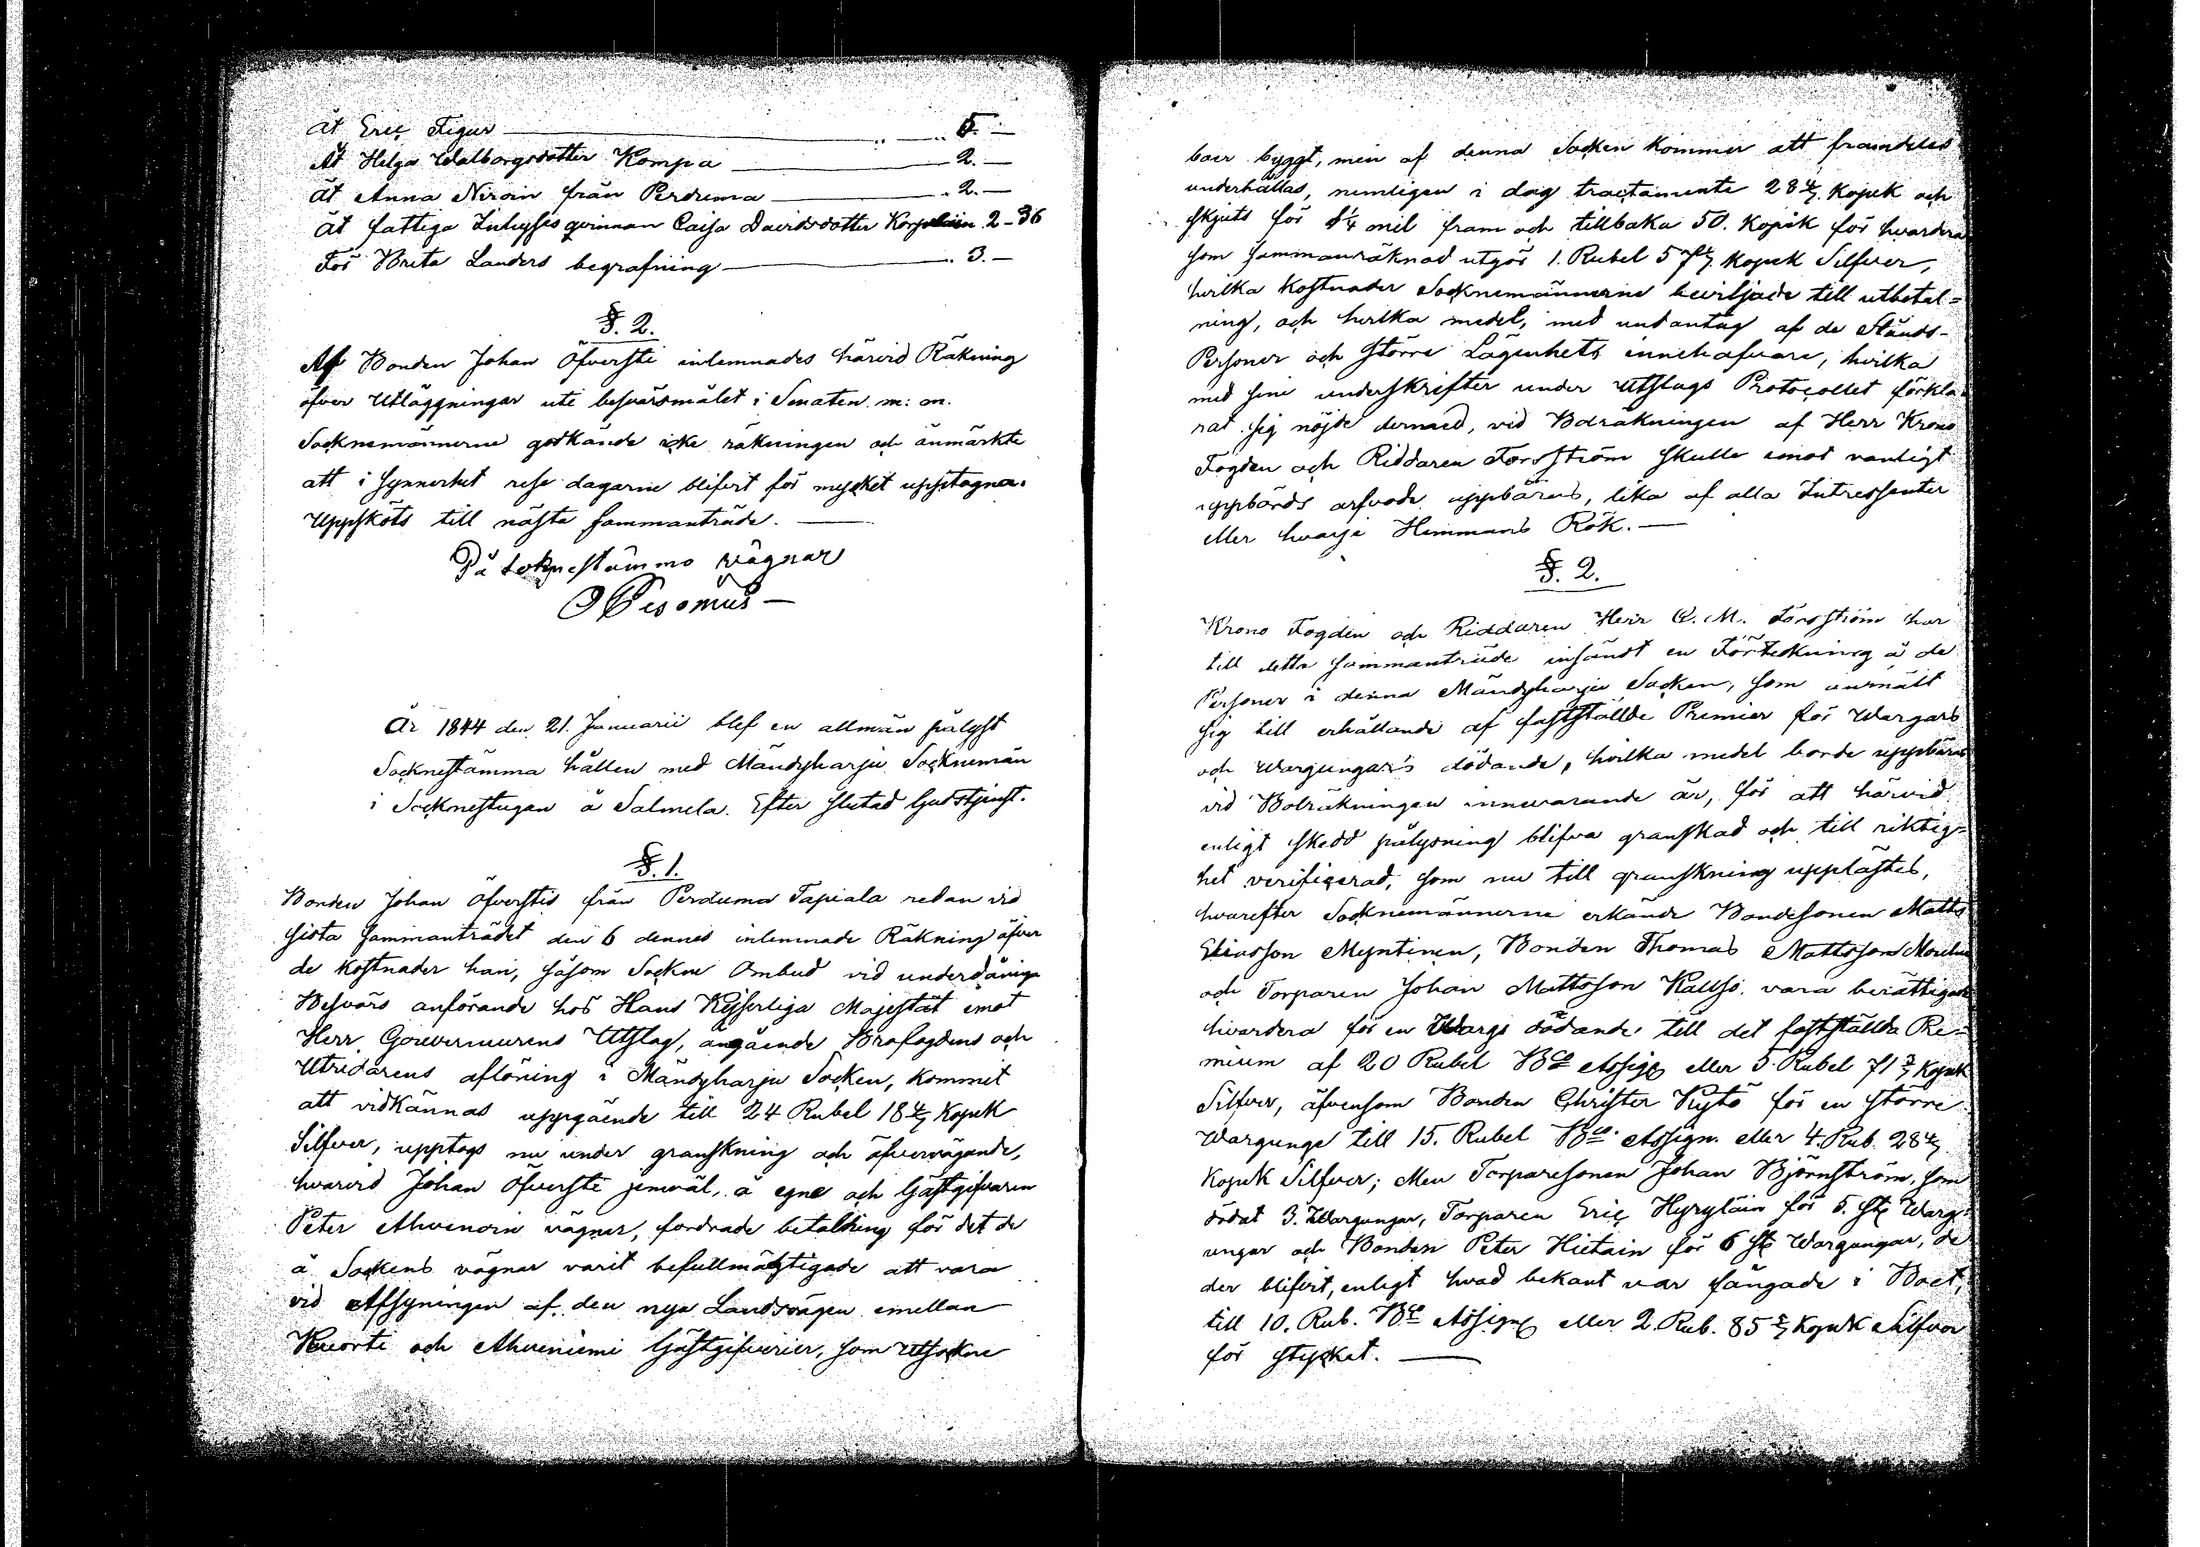 Åt Eric Figur ——— „ — „ 5. —
Åt Helga Walborgsdotter Kompa ——— „ 2. —
Åt Anna Niroin från Perduma ——— „ 2. —
Åt fattiga Inhysesqvinnan Caisa Davidsdotter Korpelain 2 - 36
För Brita Landers begrafning ——— „ 3. —
§. 2.
Af Bonden Johan Öfversti inlemnades härvid Räkning
öfver Utläggningar uti besvärsmålet i Senaten m: m.
Socknemännerne godkände icke räkningen och anmärkte
att i synnerhet rese dagarne blifvit för mycket upptagna.
Uppsköts till nästa sammanträde. —
På Soknestämmo vägnar
År 1844 den 21. Januarii blef en allmän pålyst
Socknestämma hållen med Mändyharju Socknemän
i Socknestugan å Salmela. Efter slutad Gudstjenst.
§. 1.
Bonden Johan Öfverstis från Perduma Tapiala redan vid
sista sammanträdet den 6 dennes inlemnade Räkning öfver
de kostnader han, såsom Sockne Ombud vid underdånige
Besvärs anförande hos Hans Kejserliga Majestät emot
Herr Gouverneurens Utslag, angående Brofogdens och
Utridarens aflöning i Mändyharju Socken, kommit
att vidkännas uppgående till 24 Rubel 18 4/7 Kopek
Silfver, upptogs nu under granskning och öfvervägande,
hvarvid Johan Öfversti jemväl, å egne och Gästgifvaren
Peter Ahvenoin vägnar, fordrade betalning för det de
å Sockens vägnar varit befullmägtigade att vara
vid Afsyningen af den nya Landsvägen emellan
Kuorti och Ahveniemi Gästgifverier, som Utsockne
boer byggt, men af denna Socken kommer att framdeles
underhållas, nemligen i dag tractamente 28 4/7 Kopek och
skjuts för 1/4 mil fram och tillbaka 50. Kopek för hvardera
som sammanräknad utgör 1. Rubel 57 1/7 Kopek Silfver,
hvilka kostnader Socknemännerne beviljade till utbetal=
ning, och hvilka medel, med undantag af de Stånds-
Personer och större Lägenhets innehafvare, hvilka
med sine underskrifter under Utslags Protocollet förkla-
rat sig nöjde dermed, vid Bolräkningen af Herr Krono
Fogden och Riddaren Forsström skulle emot vanligt
uppbörds arfvode uppbäras, lika af alla Intressenter
eller hvarje Hemmans Rök. —
§. 2.
Krono Fogden och Riddaren Herr C. M. Forsström har
till detta sammanträde insändt en Förteckning å de
Personer i denna Mändyharju Socken, som anmält
sig till erhållande af fastställde Premier för Wargars
och Wargungars dödande, hvilka medel borde uppbäras
vid Bolräkningen innevarande år, för att härvid
enligt skedd pålysning blifva granskad och till riktig=
het verificerad, som nu till granskning upplästes,
hvarefter Socknemännerne erkände Bondesonen Matts
Eliasson Myntinen, Bonden Thomas Mattsson
och Torparen Johan Mattsson Kallso vara berättigade
hvardera för en Wargs dödande till det fastställda Pre=
mium af 20 Rubel Bco Assign. eller 5. Rubel 71 3/7 Kopek
Silfver, äfvensom Bonden Christer Kytö för en större
Wargunge till 15. Rubel Bco. Assign. eller 4. Rub. 28 4/7
Kopek Silfver; Men Torparesonen Johan Björnström, som
dödat 3. Wargungar, Torparen Eric Hyryläin för 5. st. Warg=
ungar och Bonden Peter Hietain för 6 st. Wargungar, de
der blifvit, enligt hvad bekant var fångade i Boet,
till 10. Rub. Bco Assign. eller 2. Rub. 85 5/7 Kopek Silfver
för stycket. —